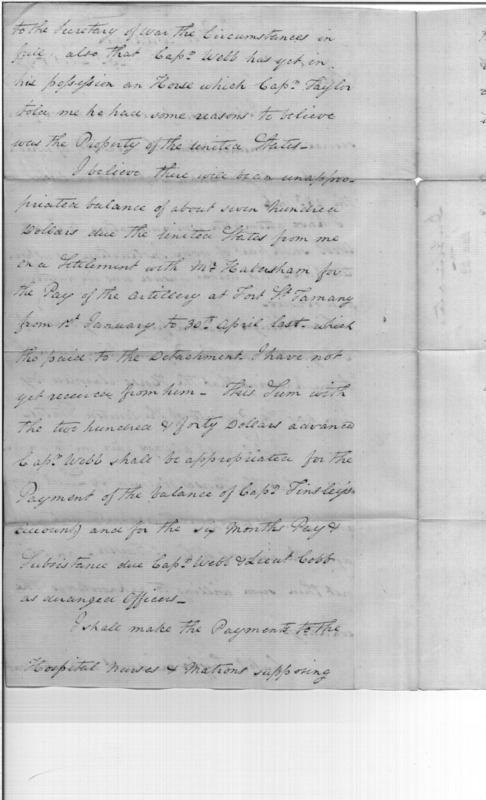 to the Secretary of War the Circumstances in
full, also that Capt. Webb has yet in
his possession an Horse which Capt. Taylor
told me he had some reasons to believe
was the Property of the United States—
I believe there will be an unappro-
priated balance of about seven Hundred
Dollars due the United States from me
on a Settlement with Mr. Habersham for
the Pay of the Artillery at Fort St. Tamany
from 1st January to 30th April last. which
tho' paid to the Detachment I have not
yet received from him— This Sum with
the two hundred & forty Dollars advanced
Capt. Webb shall be appropriated for the
Payment of the balance of Capt. Tinsley's
Account) and for the six Months Pay &
Subsistance due Capt. Webb & Lieut Cobb
as deranged Officers—
I shall make the Payments to the
Hospital Nurses & Matrons supposing